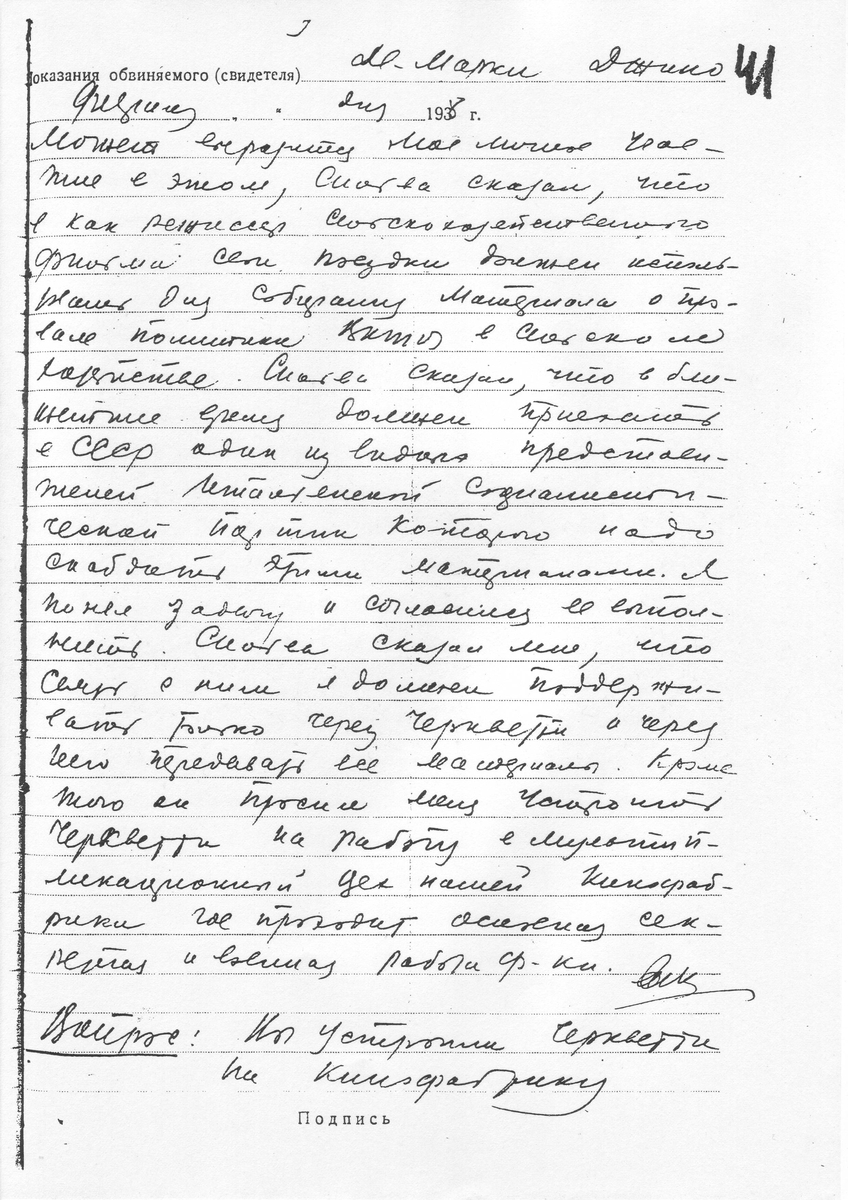 41
Показания обвиняемого (свидетеля) Де-Марки Джино
193 г.
может выразиться мое личное участие
тие в этом, Слотва сказал, что
я как режиссер сельскохозяйственного
фильма свои поездки должен использо-
для собирания материала о про-
вале политики ВКП(б) в сельском
хозяйстве. сказал, что в бли-
жайшие время должен приехать
в СССР один из видных представи-
телей Итальянской социалисти-
ческой партии которого надо
снабдить этими материалами. Я
понял задачу и согласился ее выпол-
нить. сказал мне, что
связь с ним я должен поддержи-
вать только через Черкветти и через
него передавать все материалы. Кроме
того он просил меня устроить
Черкветти на работу в мультипли-
кационный цех нашей кинофаб-
рики где проходит основная сек-
ретная и военная работа ф-ки.
Вопрос: Вы устроили Черкветти
на кинофабрику
Подпись